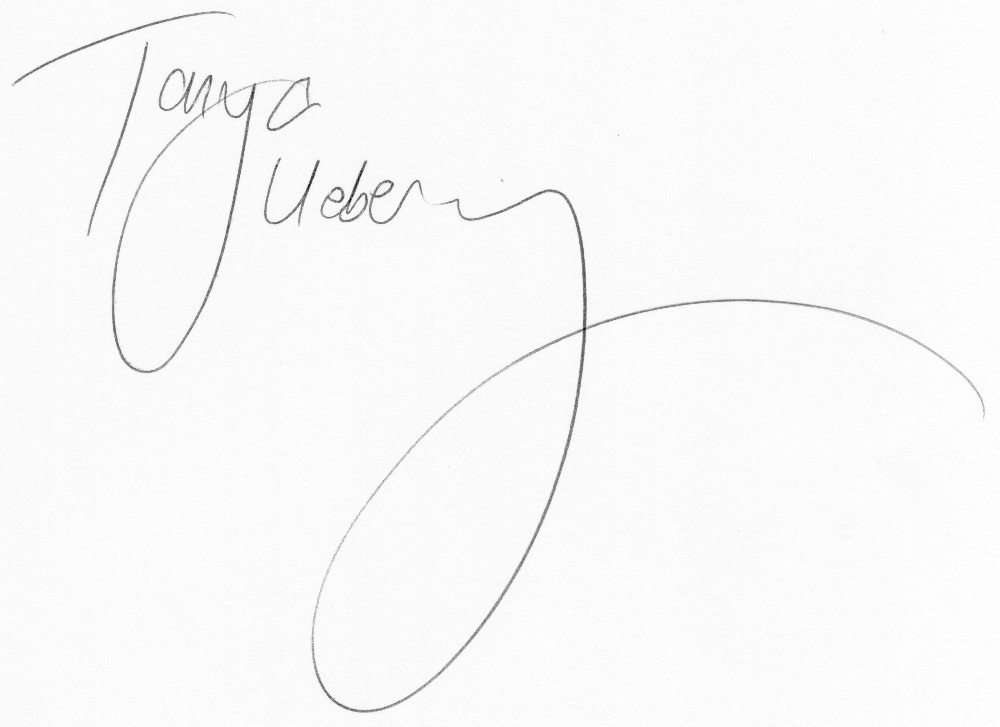 Tanya
Ueberry